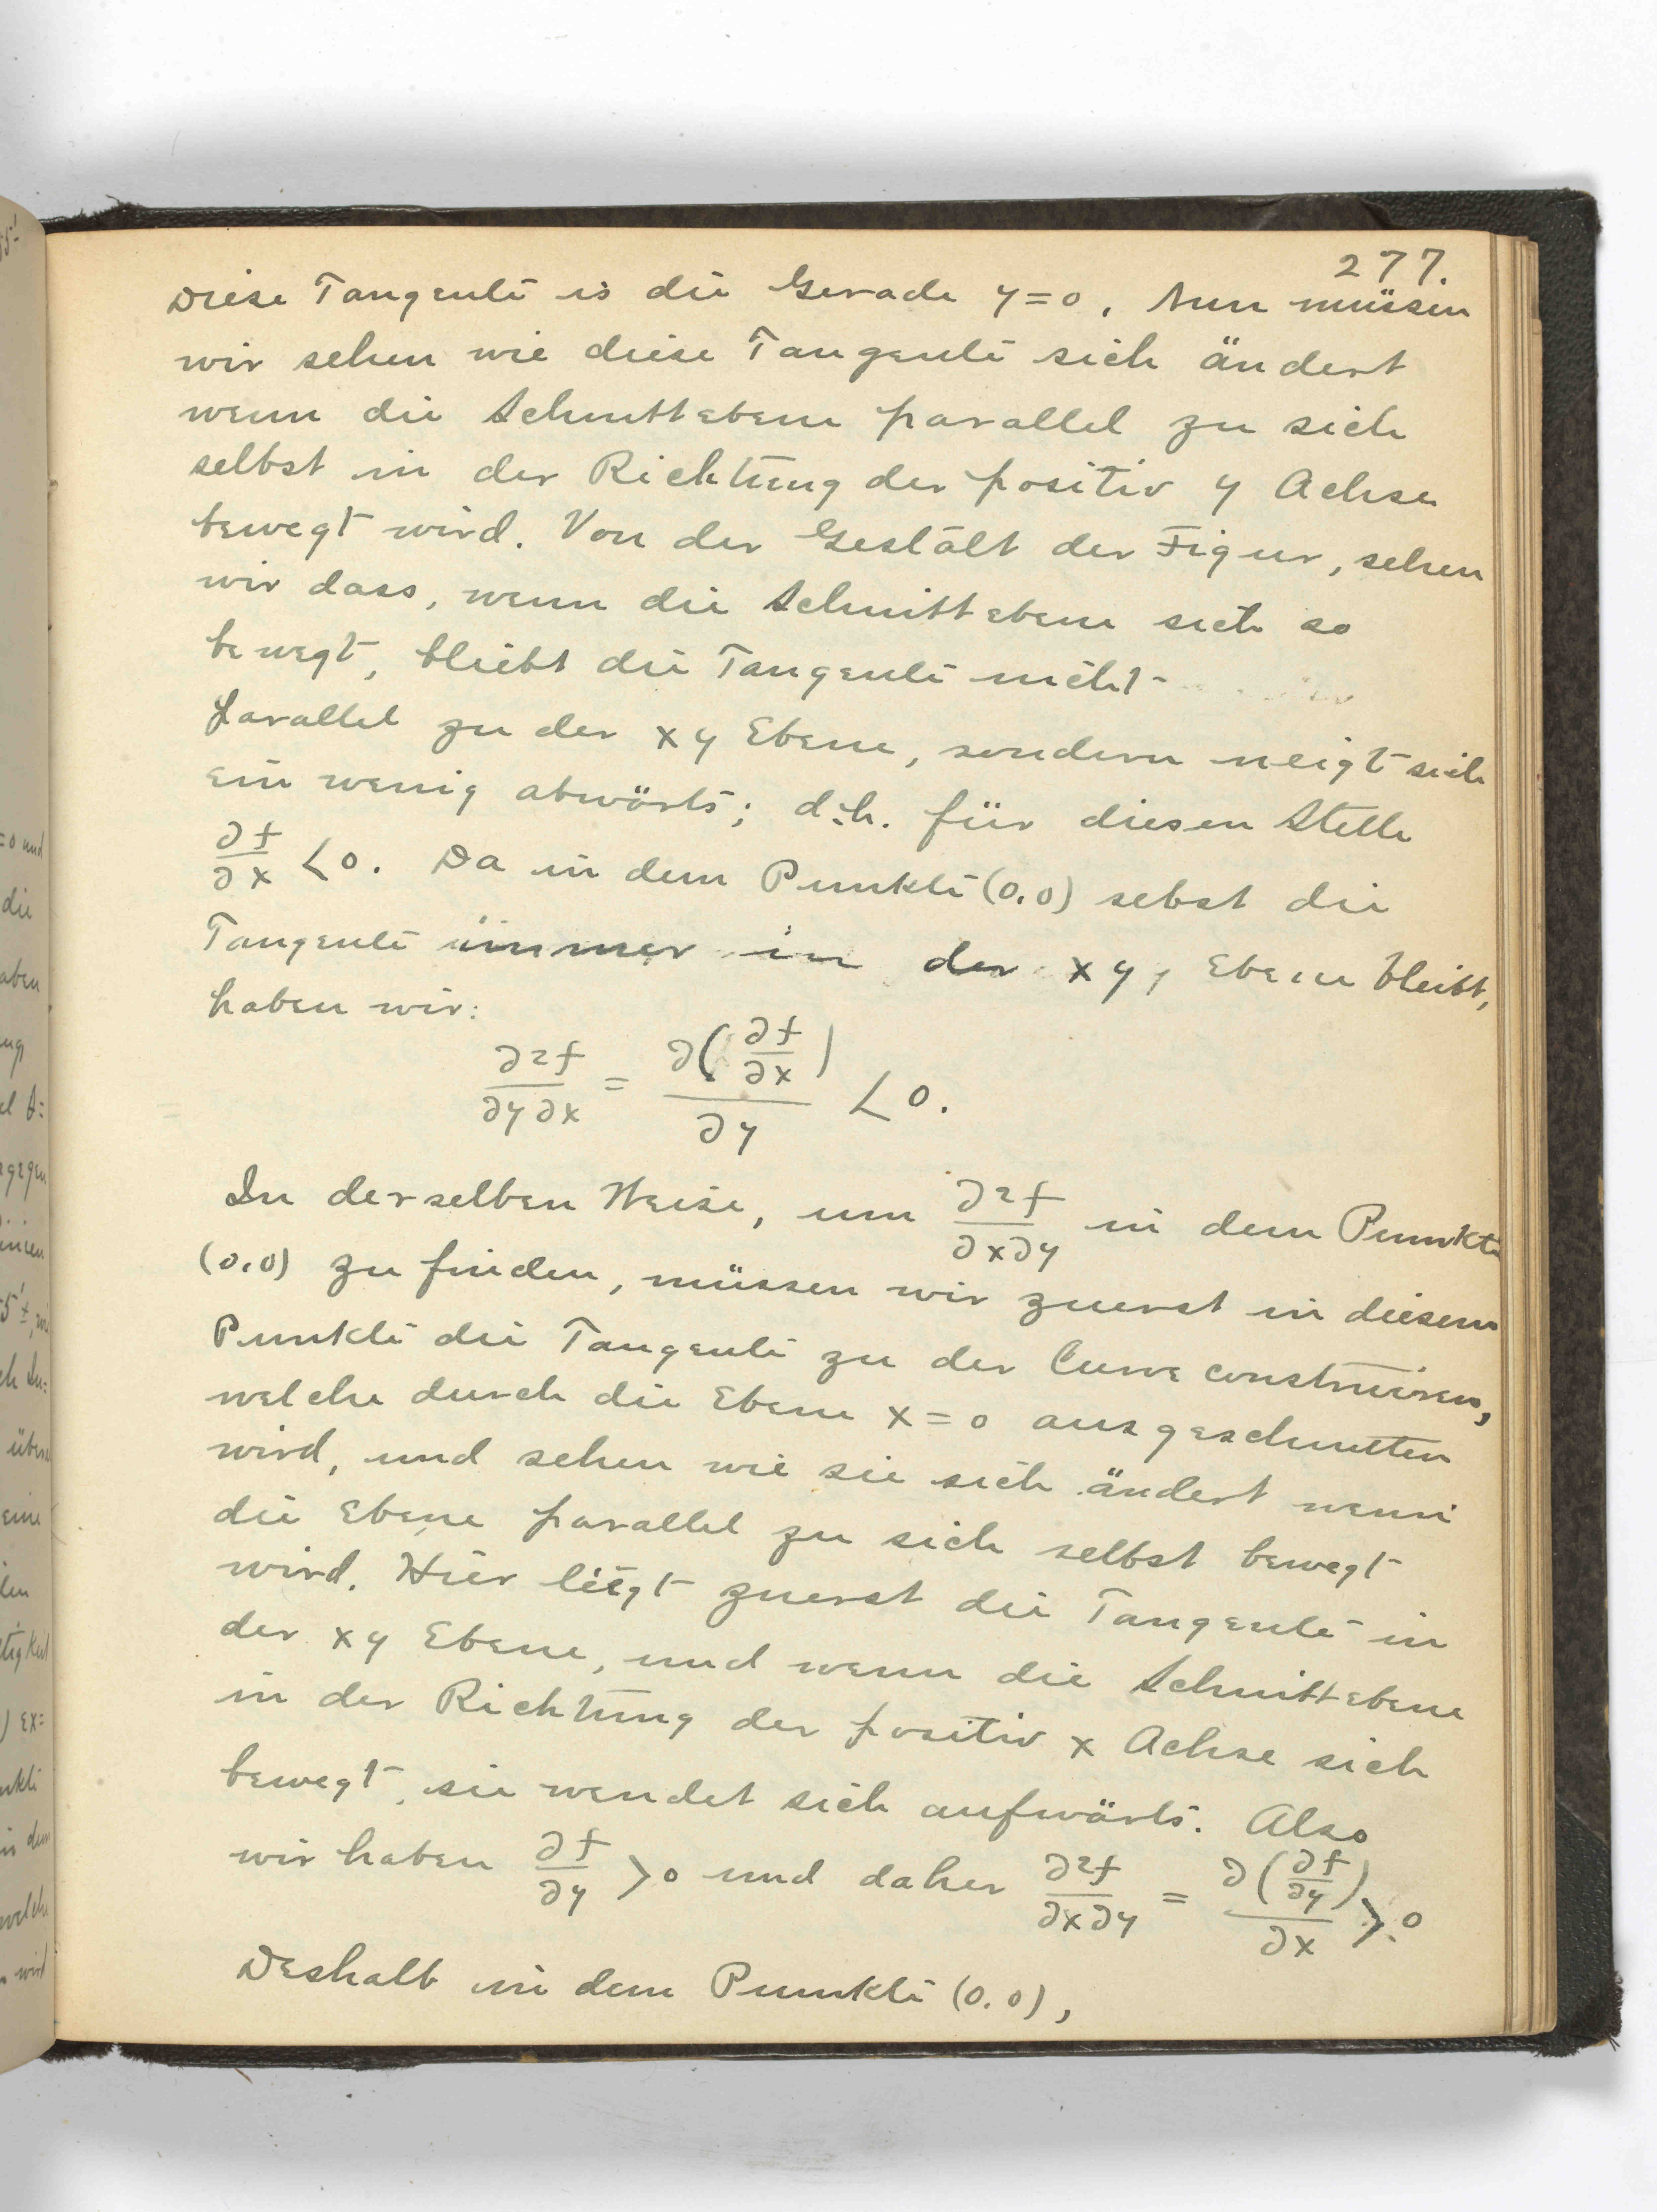 277.
Diese Tangente is die Gerade y=0. Nun müssen
wir sehen wie diese Tangente sich ändert
wenn die Schnittebene parallel zu sich
selbst in der Richtung der positiv y Achse
bewegt wird. Von der Gestalt der Figur, sehen
wir dass, wenn die Schnittebene sich so
bewegt, bleibt die Tangente nicht
parallel zu der xy Ebene, sondern neigt sich
ein wenig abwärts; d.h. für diesen Stelle
∂f/∂x < 0. Da in dem Punkte (0,0) sebst die
Tangente immer in der xy, Ebene bleibt,
haben wir:
∂²f/∂y∂x = ∂(∂f/∂x)/∂y < 0.
In derselben Weise, um ∂²f/∂x∂y in dem Punkte
(0,0) zu finden, müssen wir zuerst in diesem
Punkte die Tangente zu der Curve construiren,
welche durch die Ebene x=0 ausgeschnitten
wird, und sehen wie sie sich ändert wenn
die Ebene parallel zu sich selbst bewegt
wird. Hier liegt zuerst die Tangente in
der xy Ebene, und wenn die Schnittebene
in der Richtung der positiv x Achse sich
bewegt, sie wendet sich aufwärts. Also
wir haben ∂f/∂y > 0 und daher ∂²f/∂x∂y = ∂(∂f/∂y)/∂x > 0
Deshalb in dem Punkte (0,0),